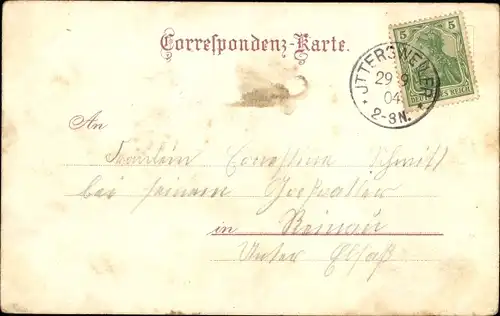 Correspondenz-Karte.
5 5
JTTERSWEILER
29 9
04
2-3N.
DEUTSCHES REICH
An
Fräulein Schmitt
bei seinem
in
Unter Elsaß